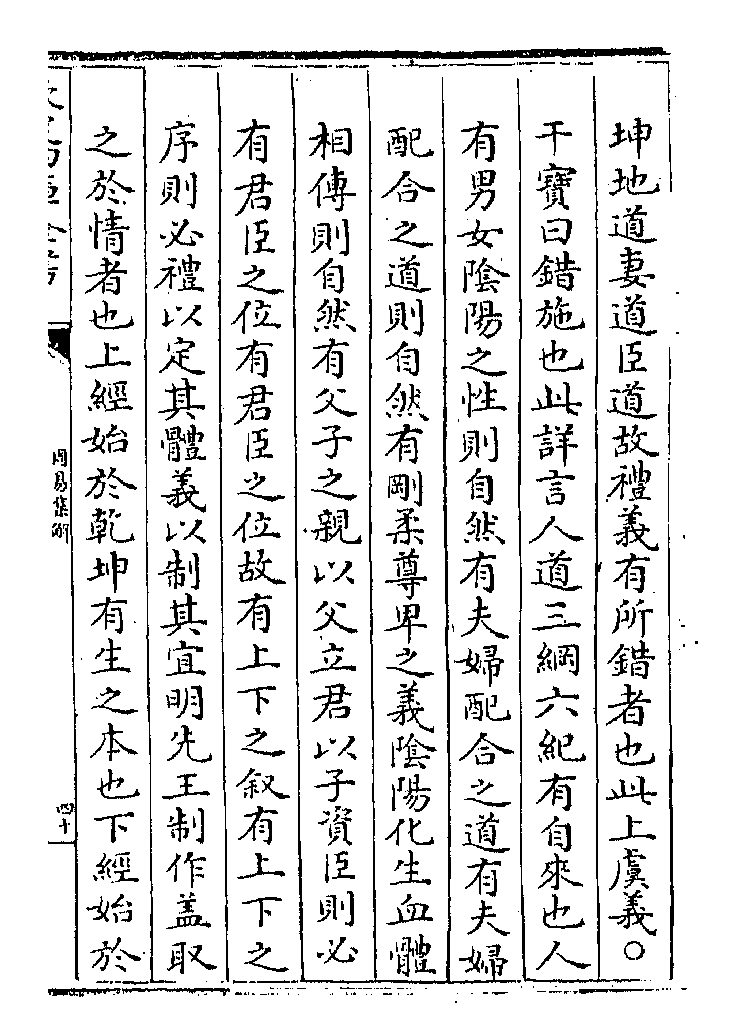 坤地道妻道臣道故禮義有所錯者也此上虞義○
干寶曰錯施也此詳言人道三綱六紀有自來也人
有男女陰陽之性則自然有夫婦配合之道有夫婦
配合之道則自然有剛柔尊卑之義陰陽化生血體
相傳則自然有父子之親以父立君以子資臣則必
有君臣之位有君臣之位故有上下之叙有上下之
序則必禮以定其體義以制其宜明先王制作蓋取
之於情者也上經始於乾坤有生之本也下經始於
周易集解
四十